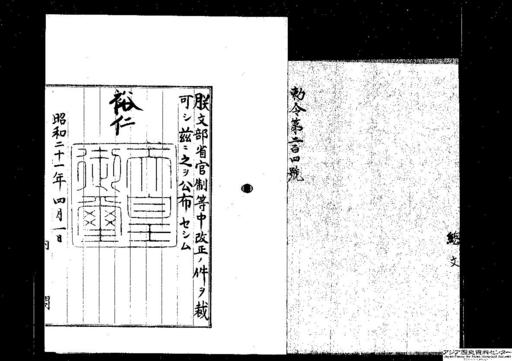 勅令第二百四號
朕文部省官制等中改正ノ件ヲ裁
可シ茲ニ之ヲ公布セシム
裕仁
天皇御璽
昭和二十一年四月一日
内
閣
アジア歴史資料センター